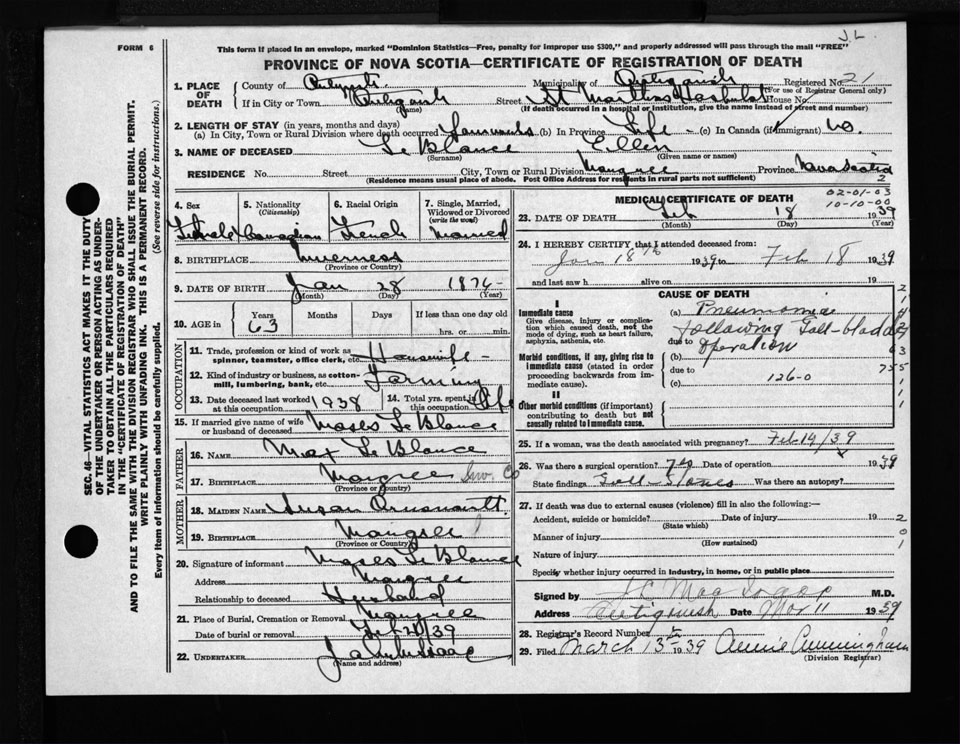 J.L.
FORM 6
This form if placed in an envelope, marked "Dominion Statistics—Free, penalty for improper use $300," and properly addressed will pass through the mail "FREE"
PROVINCE OF NOVA SCOTIA—CERTIFICATE OF REGISTRATION OF DEATH
1. PLACE OF DEATH
County of Municipality of Antigonish Registered No. 21
(For use of Registrar General only)
If in City or Town Antigonish Street St Marthas Hospital House No.
(Name) (If death occurred in a hospital or institution, give the name instead of street and number)
2. LENGTH OF STAY (in years, months and days)
(a) In City, Town or Rural Division where death occurred (b) In Province Life - (c) In Canada (if immigrant) no.
3. NAME OF DECEASED Le Blance Ellen
(Surname) (Given name or names)
RESIDENCE No. Street City, Town or Rural Division Margree Province Nova Scotia
(Residence means usual place of abode. Post Office Address for residents in rural parts not sufficient) 2
4. Sex
Female
5. Nationality
(Citizenship)
Canadian
6. Racial Origin
French
7. Single, Married, Widowed or Divorced
(write the word)
Married
8. BIRTHPLACE Inverness
(Province or Country)
9. DATE OF BIRTH Jan 28 1876-
(Month) (Day) (Year)
10. AGE in
Years Months Days If less than one day old
63 hrs. or min.
OCCUPATION
11. Trade, profession or kind of work as spinner, teamster, office clerk, etc. Housewife -
12. Kind of industry or business, as cotton-mill, lumbering, bank, etc. Farming
13. Date deceased last worked at this occupation 1938
14. Total yrs. spent in this occupation Life
15. If married give name of wife or husband of deceased Moses Le Blance
FATHER
16. NAME Max Le Blance
17. BIRTHPLACE Margree Inv Co
(Province or Country)
MOTHER
18. MAIDEN NAME Susan
19. BIRTHPLACE Margree
(Province or Country)
20. Signature of informant Moses Le Blance
Address Margree
Relationship to deceased Husband
21. Place of Burial, Cremation or Removal Margree
Date of burial or removal Feb 20/39
22. UNDERTAKER
(Name and address)
MEDICAL CERTIFICATE OF DEATH
02-01-03
10-10-00
23. DATE OF DEATH Feb 18 1939
(Month) (Day) (Year)
24. I HEREBY CERTIFY that I attended deceased from:
Jan 18th 1939 to Feb 18 1939
and last saw h alive on 19
CAUSE OF DEATH
I
Immediate cause
Give disease, injury or complication which caused death, not the mode of dying, such as heart failure, asphyxia, asthenia, etc.
Morbid conditions, if any, giving rise to immediate cause (stated in order proceeding backwards from immediate cause).
II
Other morbid conditions (if important) contributing to death but not causally related to immediate cause.
(a) Pneumonia
following Gall-bladder
due to operation
(b)
due to
(c) 126-0
25. If a woman, was the death associated with pregnancy? Feb 14/39
26. Was there a surgical operation? Yes Date of operation 1939
State findings Gall-Stones Was there an autopsy?
27. If death was due to external causes (violence) fill in also the following:—
Accident, suicide or homicide? Date of injury 19
(State which)
Manner of injury
(How sustained)
Nature of injury
Specify whether injury occurred in industry, in home, or in public place
Signed by M.D.
Address Antigonish Date Mar 11 1939
28. Registrar's Record Number
29. Filed March 13th 1939 Annie Cunningham
(Division Registrar)
SEC. 46—VITAL STATISTICS ACT MAKES IT THE DUTY
OF THE UNDERTAKER OR PERSON ACTING AS UNDER-
TAKER TO OBTAIN ALL THE PARTICULARS REQUIRED
IN THE "CERTIFICATE OF REGISTRATION OF DEATH"
AND TO FILE THE SAME WITH THE DIVISION REGISTRAR WHO SHALL ISSUE THE BURIAL PERMIT.
WRITE PLAINLY WITH UNFADING INK. THIS IS A PERMANENT RECORD.
Every item of information should be carefully supplied. (See reverse side for instructions.)